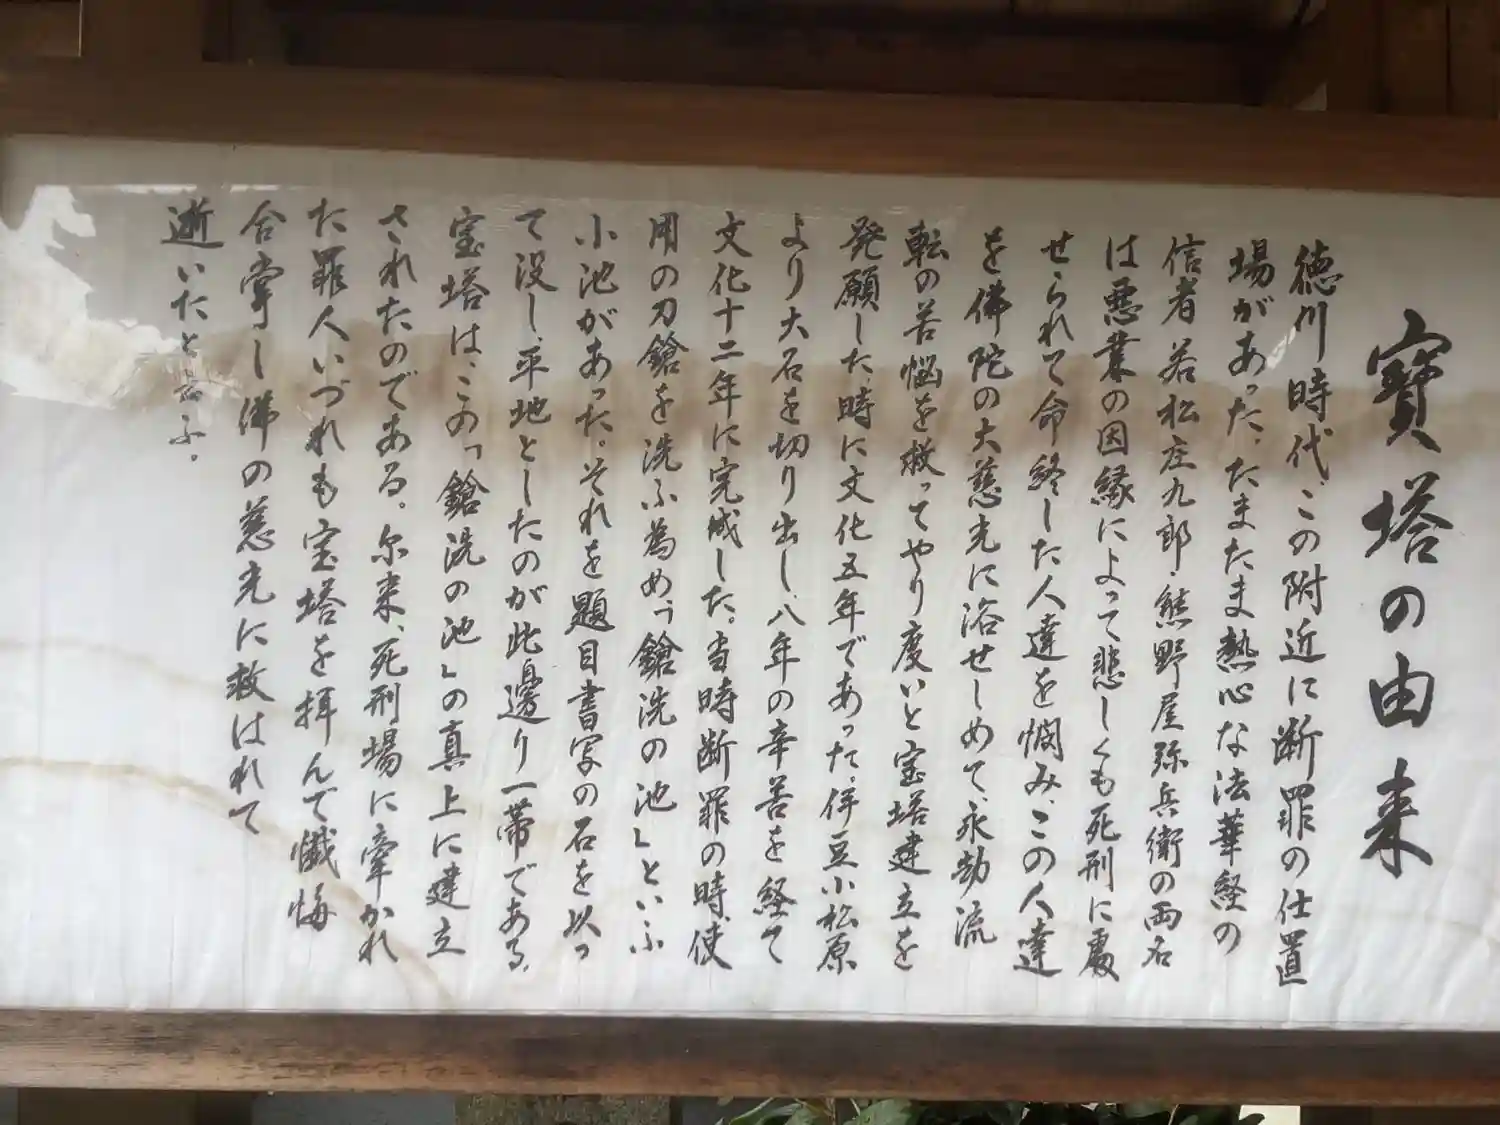 寳塔の由来
徳川時代、この附近に断罪の仕置
場があった。たまたま熱心な法華経の
信者若松庄九郎・熊野屋弥兵衛の両名
は悪業の因縁によって悲しくも死刑に處
せられて命終した人達を憫み、この人達
を佛陀の大慈光に浴せしめて、永劫流
転の苦悩を救ってやり度いと宝塔建立を
発願した時に文化五年であった。伴豆小松原
より大石を切り出し、八年の辛苦を経て
文化十二年に完成した。当時断罪の時、使
用の刀鎗を洗ふ為め「鎗洗の池」といふ
小池があった。それを題目書写の石を以っ
て没し、平地としたのが此邊り一帯である。
宝塔は、この「鎗洗の池」の真上に建立
されたのである。尓来、死刑場に牽かれ
た罪人いづれも宝塔を拝んで懺悔
合掌し佛の慈光に救はれて
逝いたと云ふ。